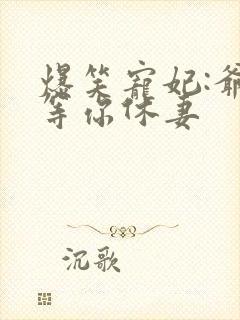 爆笑寵妃:爺
等你休妻
沉歌